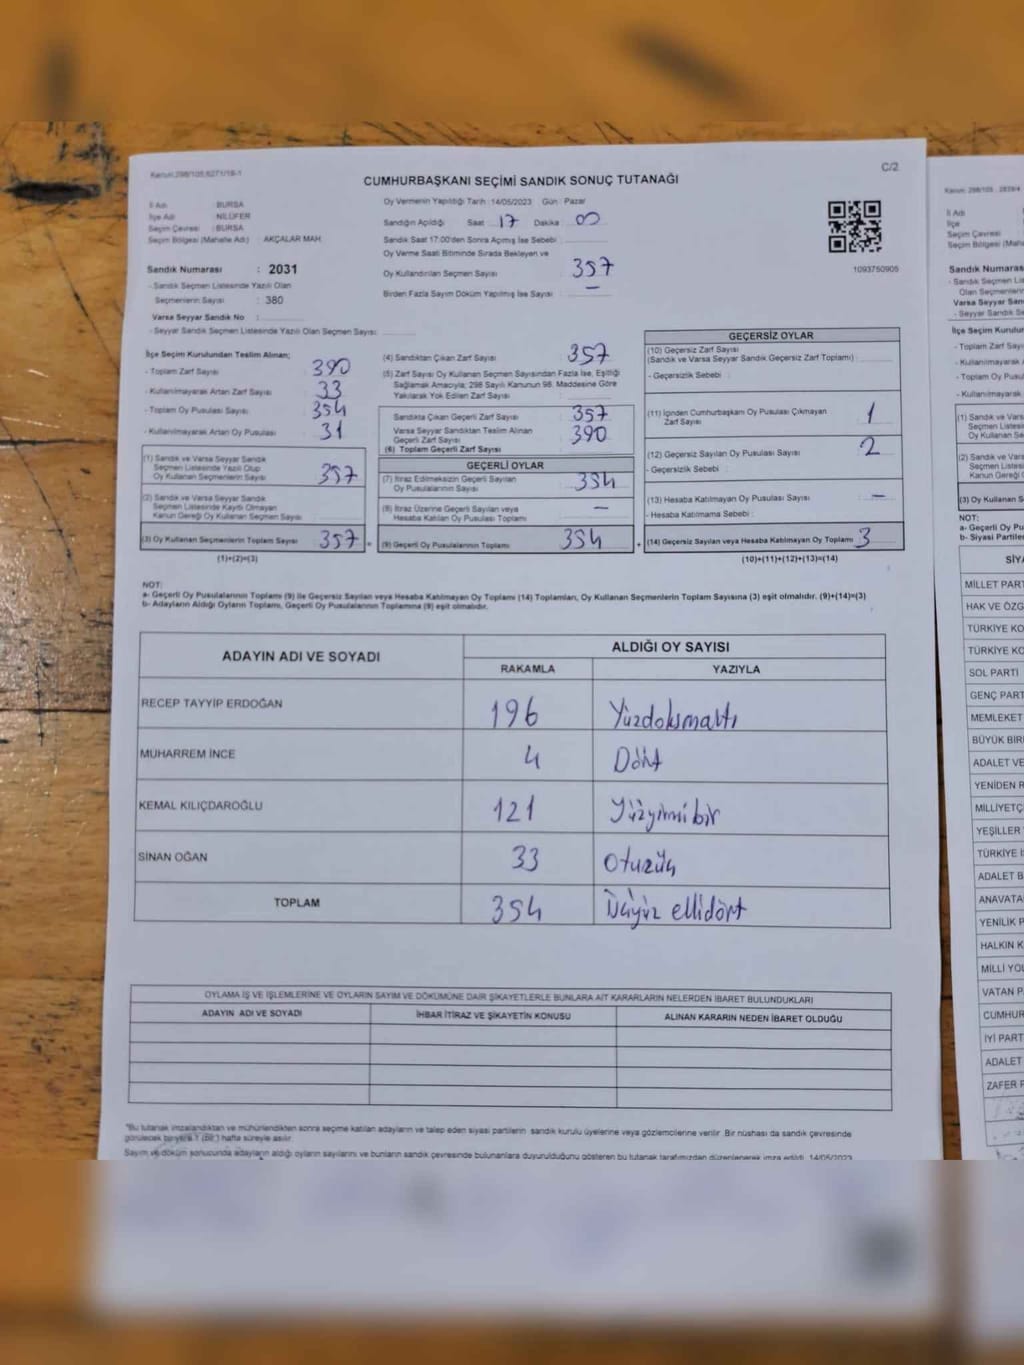 Kanun:298/105,6271/18-1
C/2
CUMHURBAŞKANI SEÇİMİ SANDIK SONUÇ TUTANAĞI
İl Adı : BURSA
İlçe Adı : NİLÜFER
Seçim Çevresi : BURSA
Seçim Bölgesi (Mahalle Adı) : AKÇALAR MAH.
Sandık Numarası : 2031
- Sandık Seçmen Listesinde Yazılı Olan
Seçmenlerin Sayısı : 380
Varsa Seyyar Sandık No :
- Seyyar Sandık Seçmen Listesinde Yazılı Olan Seçmen Sayısı:
Oy Vermenin Yapıldığı Tarih :14/05/2023 Gün : Pazar
Sandığın Açıldığı Saat : 17 Dakika : 00
Sandık Saat 17:00'den Sonra Açılmış İse Sebebi :
Oy Verme Saati Bitiminde Sırada Bekleyen ve
Oy Kullandırılan Seçmen Sayısı : 357
Birden Fazla Sayım Döküm Yapılmış İse Sayısı : –
1093750905
İlçe Seçim Kurulundan Teslim Alınan;
- Toplam Zarf Sayısı : 390
- Kullanılmayarak Artan Zarf Sayısı : 33
- Toplam Oy Pusulası Sayısı : 354
- Kullanılmayarak Artan Oy Pusulası : 31
(1) Sandık ve Varsa Seyyar Sandık
Seçmen Listesinde Yazılı Olup
Oy Kullanan Seçmenlerin Sayısı : 357
(2) Sandık ve Varsa Seyyar Sandık
Seçmen Listesinde Kaydı Olmayan
Kanun Gereği Oy Kullanan Seçmen Sayısı :
(3) Oy Kullanan Seçmenlerin Toplam Sayısı : 357
(1)+(2)=(3)
(4) Sandıktan Çıkan Zarf Sayısı : 357
(5) Zarf Sayısı Oy Kullanan Seçmen Sayısından Fazla İse, Eşitliği
Sağlamak Amacıyla; 298 Sayılı Kanunun 98. Maddesine Göre
Yakılarak Yok Edilen Zarf Sayısı :
Sandıkta Çıkan Geçerli Zarf Sayısı : 357
Varsa Seyyar Sandıktan Teslim Alınan
Geçerli Zarf Sayısı : 390
(6) Toplam Geçerli Zarf Sayısı :
GEÇERLİ OYLAR
(7) İtiraz Edilmeksizin Geçerli Sayılan
Oy Pusulalarının Sayısı : 354
(8) İtiraz Üzerine Geçerli Sayılan veya
Hesaba Katılan Oy Pusulası Toplamı : –
(9) Geçerli Oy Pusulalarının Toplamı : 354
GEÇERSİZ OYLAR
(10) Geçersiz Zarf Sayısı
(Sandık ve Varsa Seyyar Sandık Geçersiz Zarf Toplamı) :
- Geçersizlik Sebebi :
(11) İçinden Cumhurbaşkanı Oy Pusulası Çıkmayan
Zarf Sayısı : 1
(12) Geçersiz Sayılan Oy Pusulası Sayısı : 2
- Geçersizlik Sebebi :
(13) Hesaba Katılmayan Oy Pusulası Sayısı : –
- Hesaba Katılmama Sebebi :
(14) Geçersiz Sayılan veya Hesaba Katılmayan Oy Toplamı : 3
(10)+(11)+(12)+(13)=(14)
NOT:
a- Geçerli Oy Pusulalarının Toplamı (9) ile Geçersiz Sayılan veya Hesaba Katılmayan Oy Toplamı (14) Toplamları, Oy Kullanan Seçmenlerin Toplam Sayısına (3) eşit olmalıdır. (9)+(14)=(3)
b- Adayların Aldığı Oyların Toplamı, Geçerli Oy Pusulalarının Toplamına (9) eşit olmalıdır.
ADAYIN ADI VE SOYADI ALDIĞI OY SAYISI
RAKAMLA YAZIYLA
RECEP TAYYİP ERDOĞAN 196 Yüzdoksanaltı
MUHARREM İNCE 4 Dört
KEMAL KILIÇDAROĞLU 121 Yüzyirmibir
SİNAN OĞAN 33 Otuzüç
TOPLAM 354 Üçyüz ellidört
OYLAMA İŞ VE İŞLEMLERİNE VE OYLARIN SAYIM VE DÖKÜMÜNE DAİR ŞİKAYETLERLE BUNLARA AİT KARARLARIN NELERDEN İBARET BULUNDUKLARI
ADAYIN ADI VE SOYADI İHBAR İTİRAZ VE ŞİKAYETİN KONUSU ALINAN KARARIN NEDEN İBARET OLDUĞU
*Bu tutanak imzalandıktan ve mühürlendikten sonra seçime katılan adayların ve talep eden siyasi partilerin sandık kurulu üyelerine veya gözlemcilerine verilir. Bir nüshası da sandık çevresinde
görülecek bir yere 1 (bir) hafta süreyle asılır.
Sayım ve döküm sonucunda adayların aldığı oyların sayılarını ve bunların sandık çevresinde bulunanlara duyurulduğunu gösteren bu tutanak tarafımızdan düzenlenerek imza edildi. 14/05/2023
İl Adı
İlçe
Seçim Çevresi
Seçim Bölgesi (Mahalle
Sandık Numarası
- Sandık Seçmen
Olan Seçmenlerin
Varsa Seyyar Sandık
- Seyyar Sandık Seçmen
İlçe Seçim Kurulundan
- Toplam Zarf Sayısı
- Kullanılmayarak
- Toplam Oy Pusulası
- Kullanılmayarak
(1) Sandık ve Varsa
Seçmen Listesinde
Oy Kullanan
(2) Sandık ve Varsa
Seçmen Listesinde
Kanun Gereği
(3) Oy Kullanan S
NOT:
a- Geçerli Oy Pusu
b- Siyasi Partiler
SİYA
MİLLET PART
HAK VE ÖZG
TÜRKİYE KO
TÜRKİYE KO
SOL PARTİ
GENÇ PART
MEMLEKET
BÜYÜK BİR
ADALET VE
YENİDEN R
MİLLİYETÇ
YEŞİLLER
TÜRKİYE İ
ADALET B
ANAVATA
YENİLİK P
HALKIN K
MİLLİ YOL
VATAN P
CUMHUR
İYİ PART
ADALET
ZAFER P